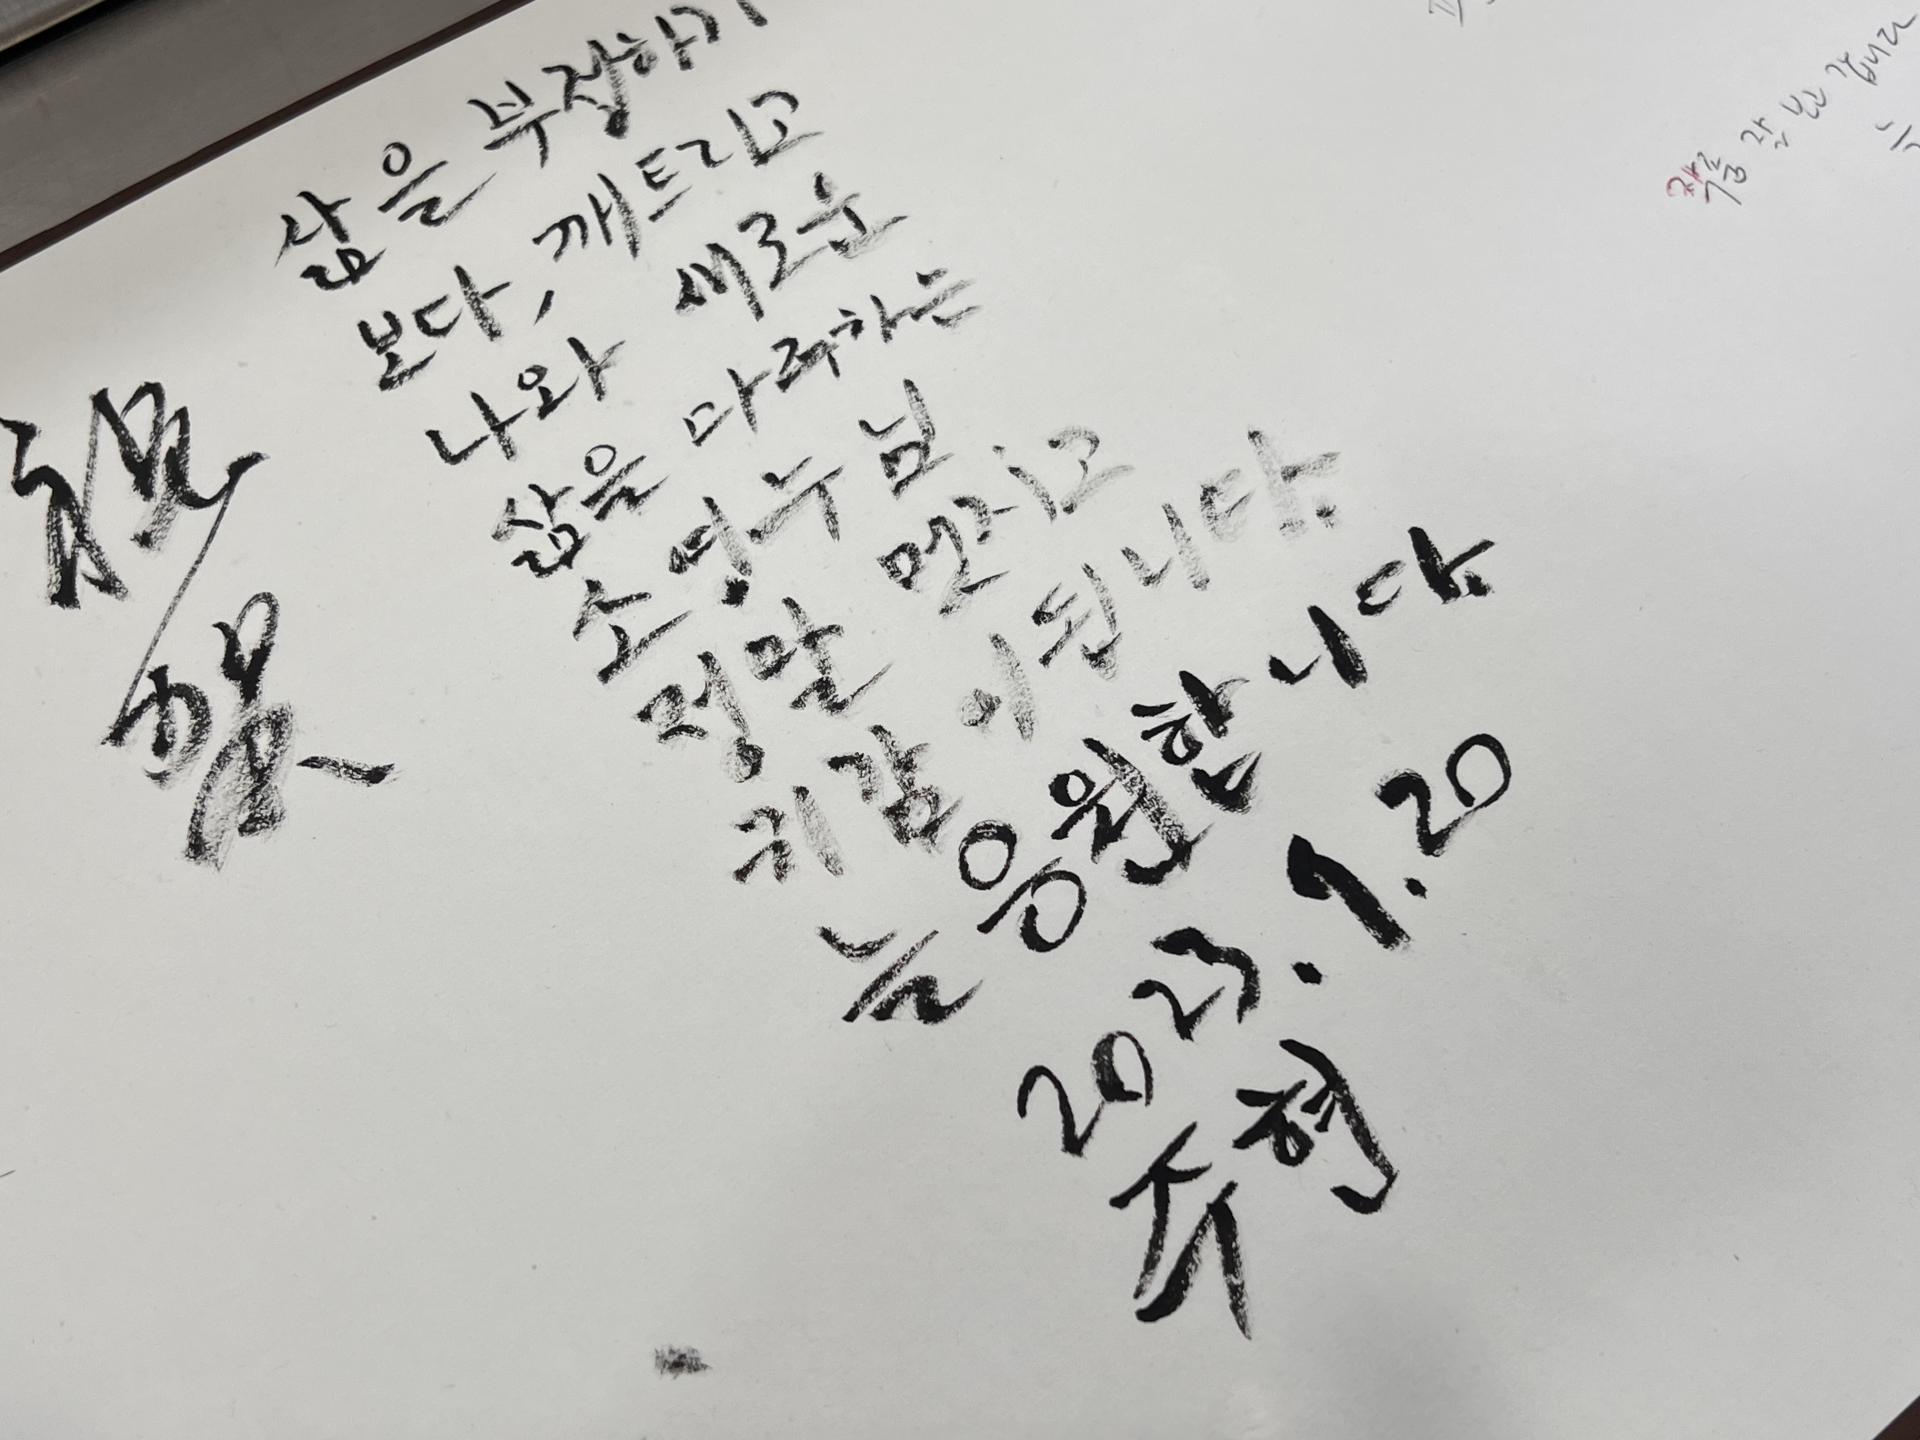 삶을 부정하기
보다, 깨트리고
나와 새로운
삶을 마주하는
소영누님
정말 멋지고
귀감이 됩니다.
늘 응원합니다.
2023. 9. 20
주현
작품 잘 보고 갑니다